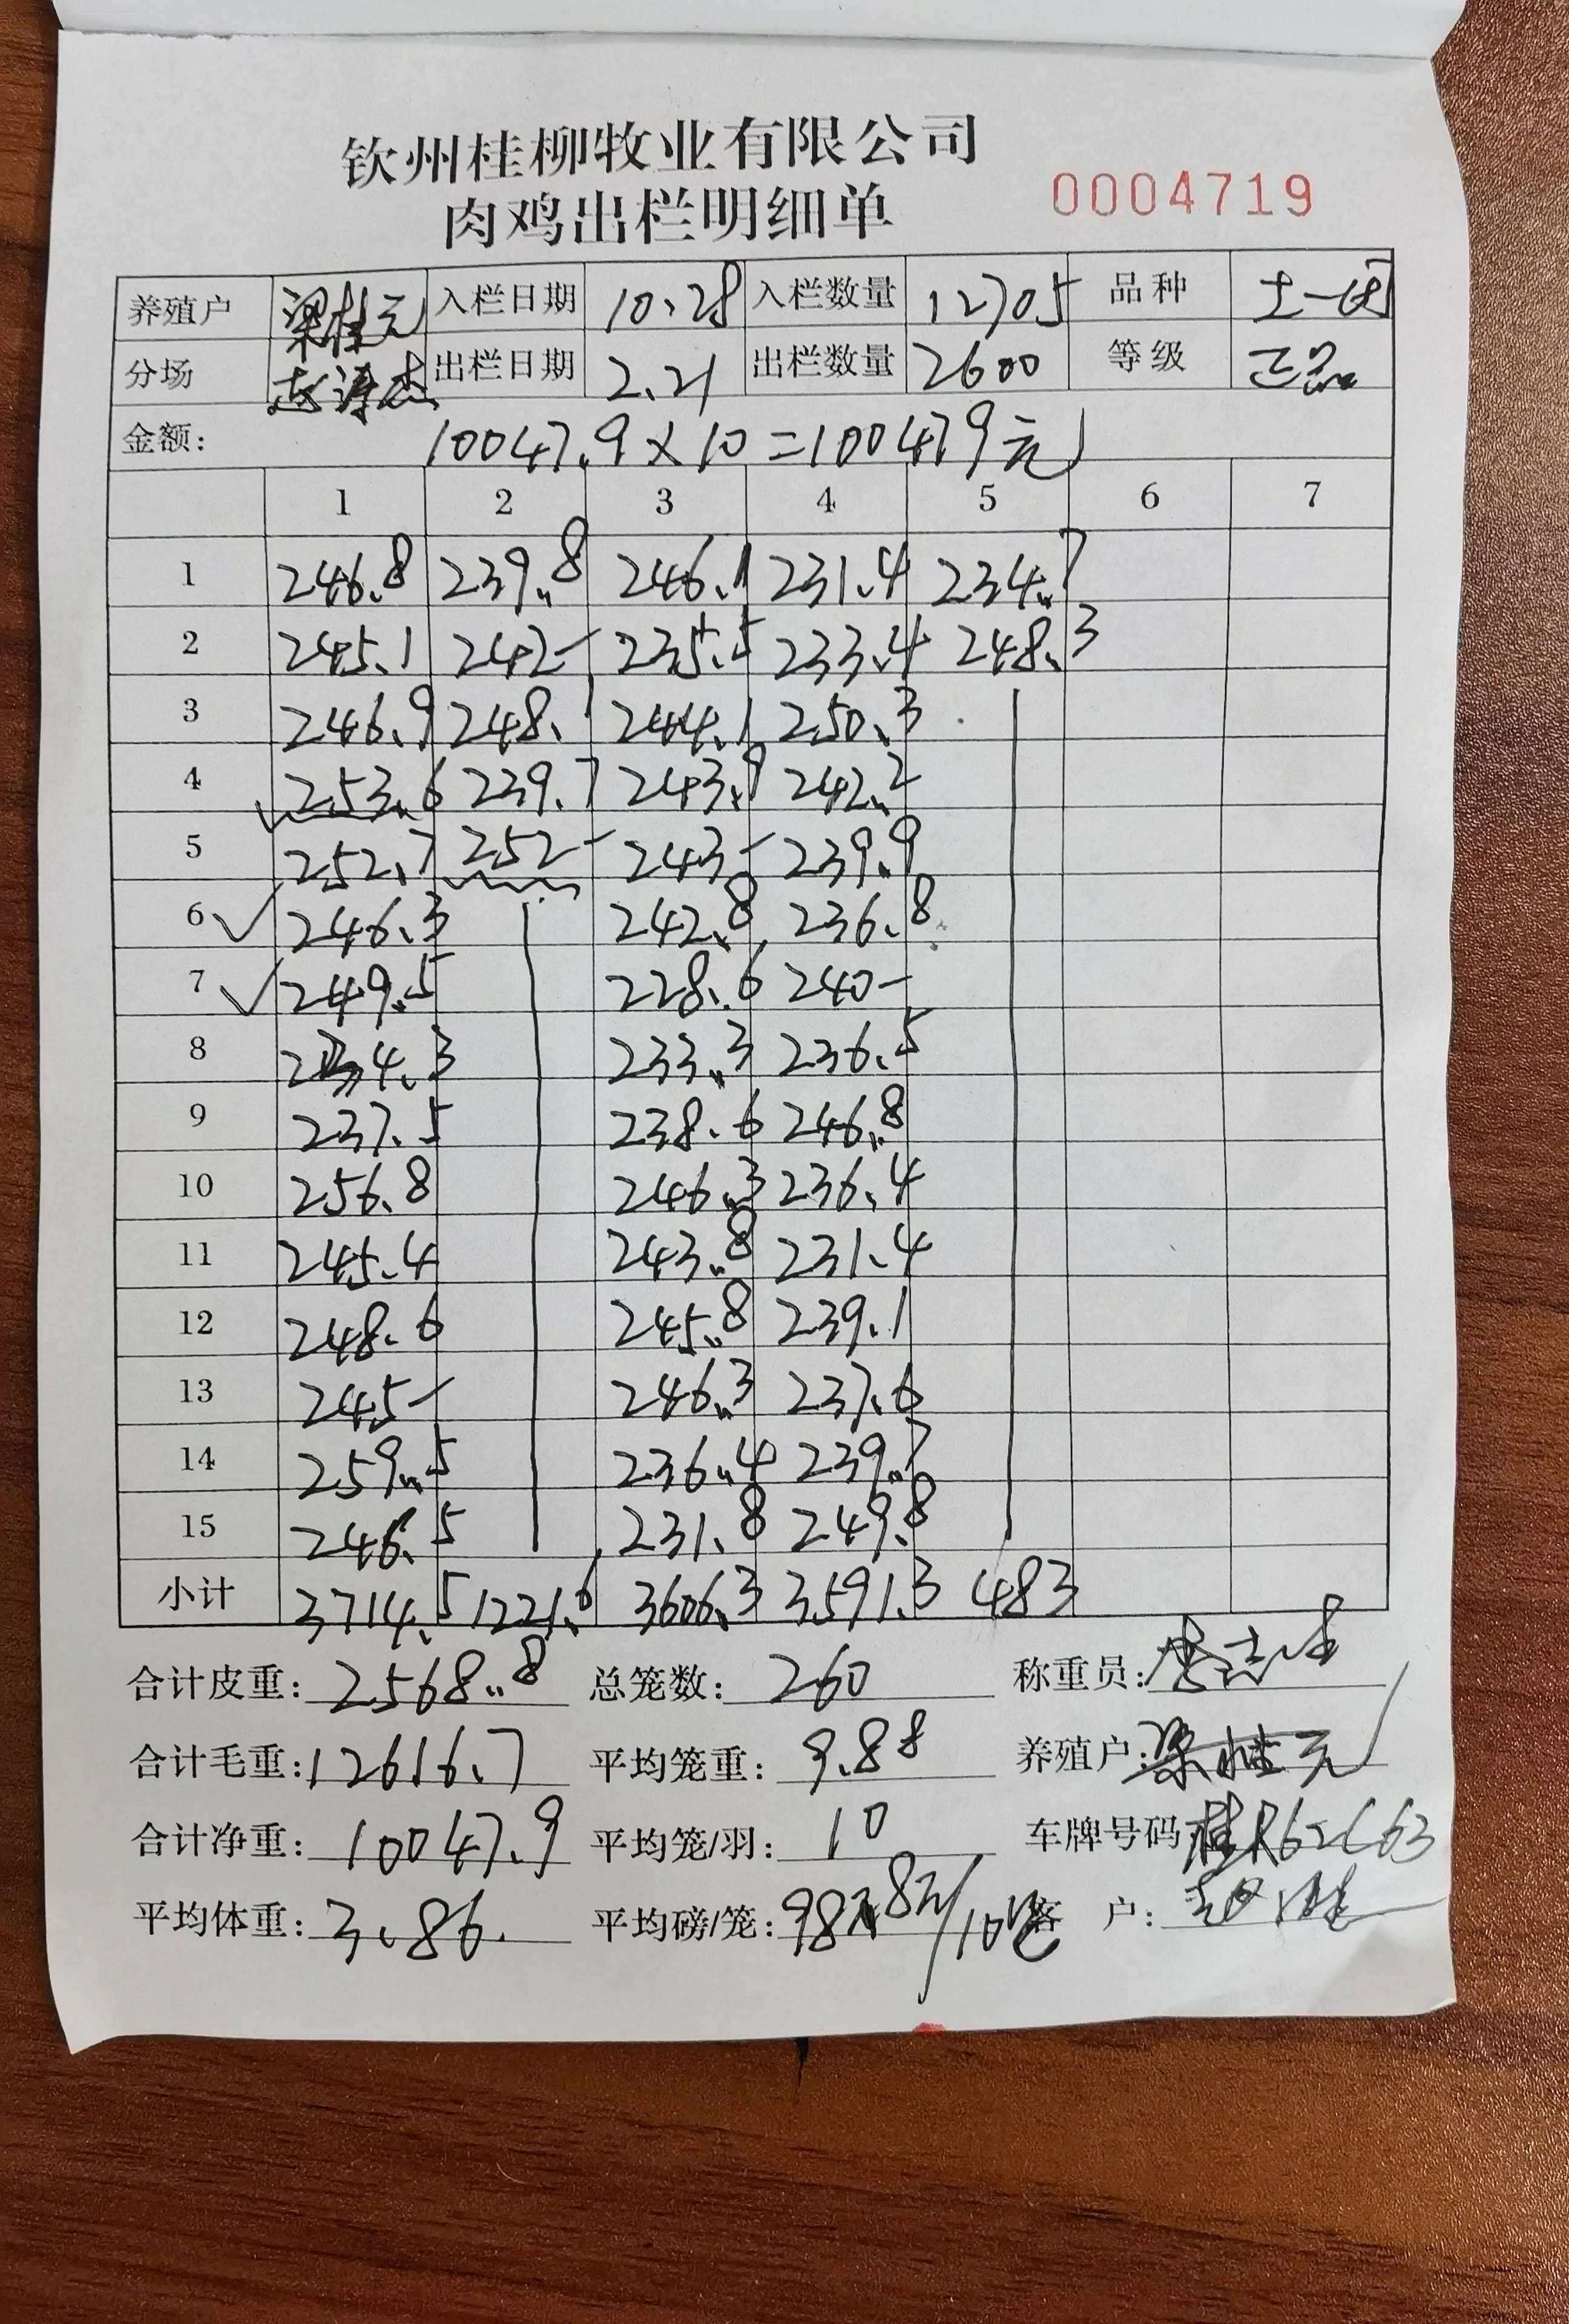 钦州桂柳牧业有限公司
肉鸡出栏明细单 0004719
养殖户 梁桂元 入栏日期 10.28 入栏数量 12705 品种 土一
分场 出栏日期 2.21 出栏数量 2600 等级 正品
金额: 10047.9×10=100479元
1 2 3 4 5 6 7
1 246.8 239.8 246.1 231.4 234.7
2 245.1 242- 235.5 233.4 248.3
3 246.9 248.1 244.1 250.3
4 253.6 239.7 243.9 242.2
5 252.7 252- 243- 239.9
6 246.3 242.8 236.8
7 249.5 228.6 240-
8 234.3 233.3 236.5
9 237.5 238.6 246.8
10 256.8 246.3 236.4
11 245.4 243.8 231.4
12 248.6 245.8 239.1
13 245- 246.3 237.6
14 259.5 236.4 239.7
15 246.5 231.8 249.8
小计 3714.5 1221.6 3606.3 3591.3 483
合计皮重: 2568.8 总笼数: 260 称重员:
合计毛重: 12616.7 平均笼重: 9.88 养殖户: 梁桂元
合计净重: 10047.9 平均笼/羽: 10 车牌号码: 桂R62C63
平均体重: 3.86. 平均磅/笼: 客 户: